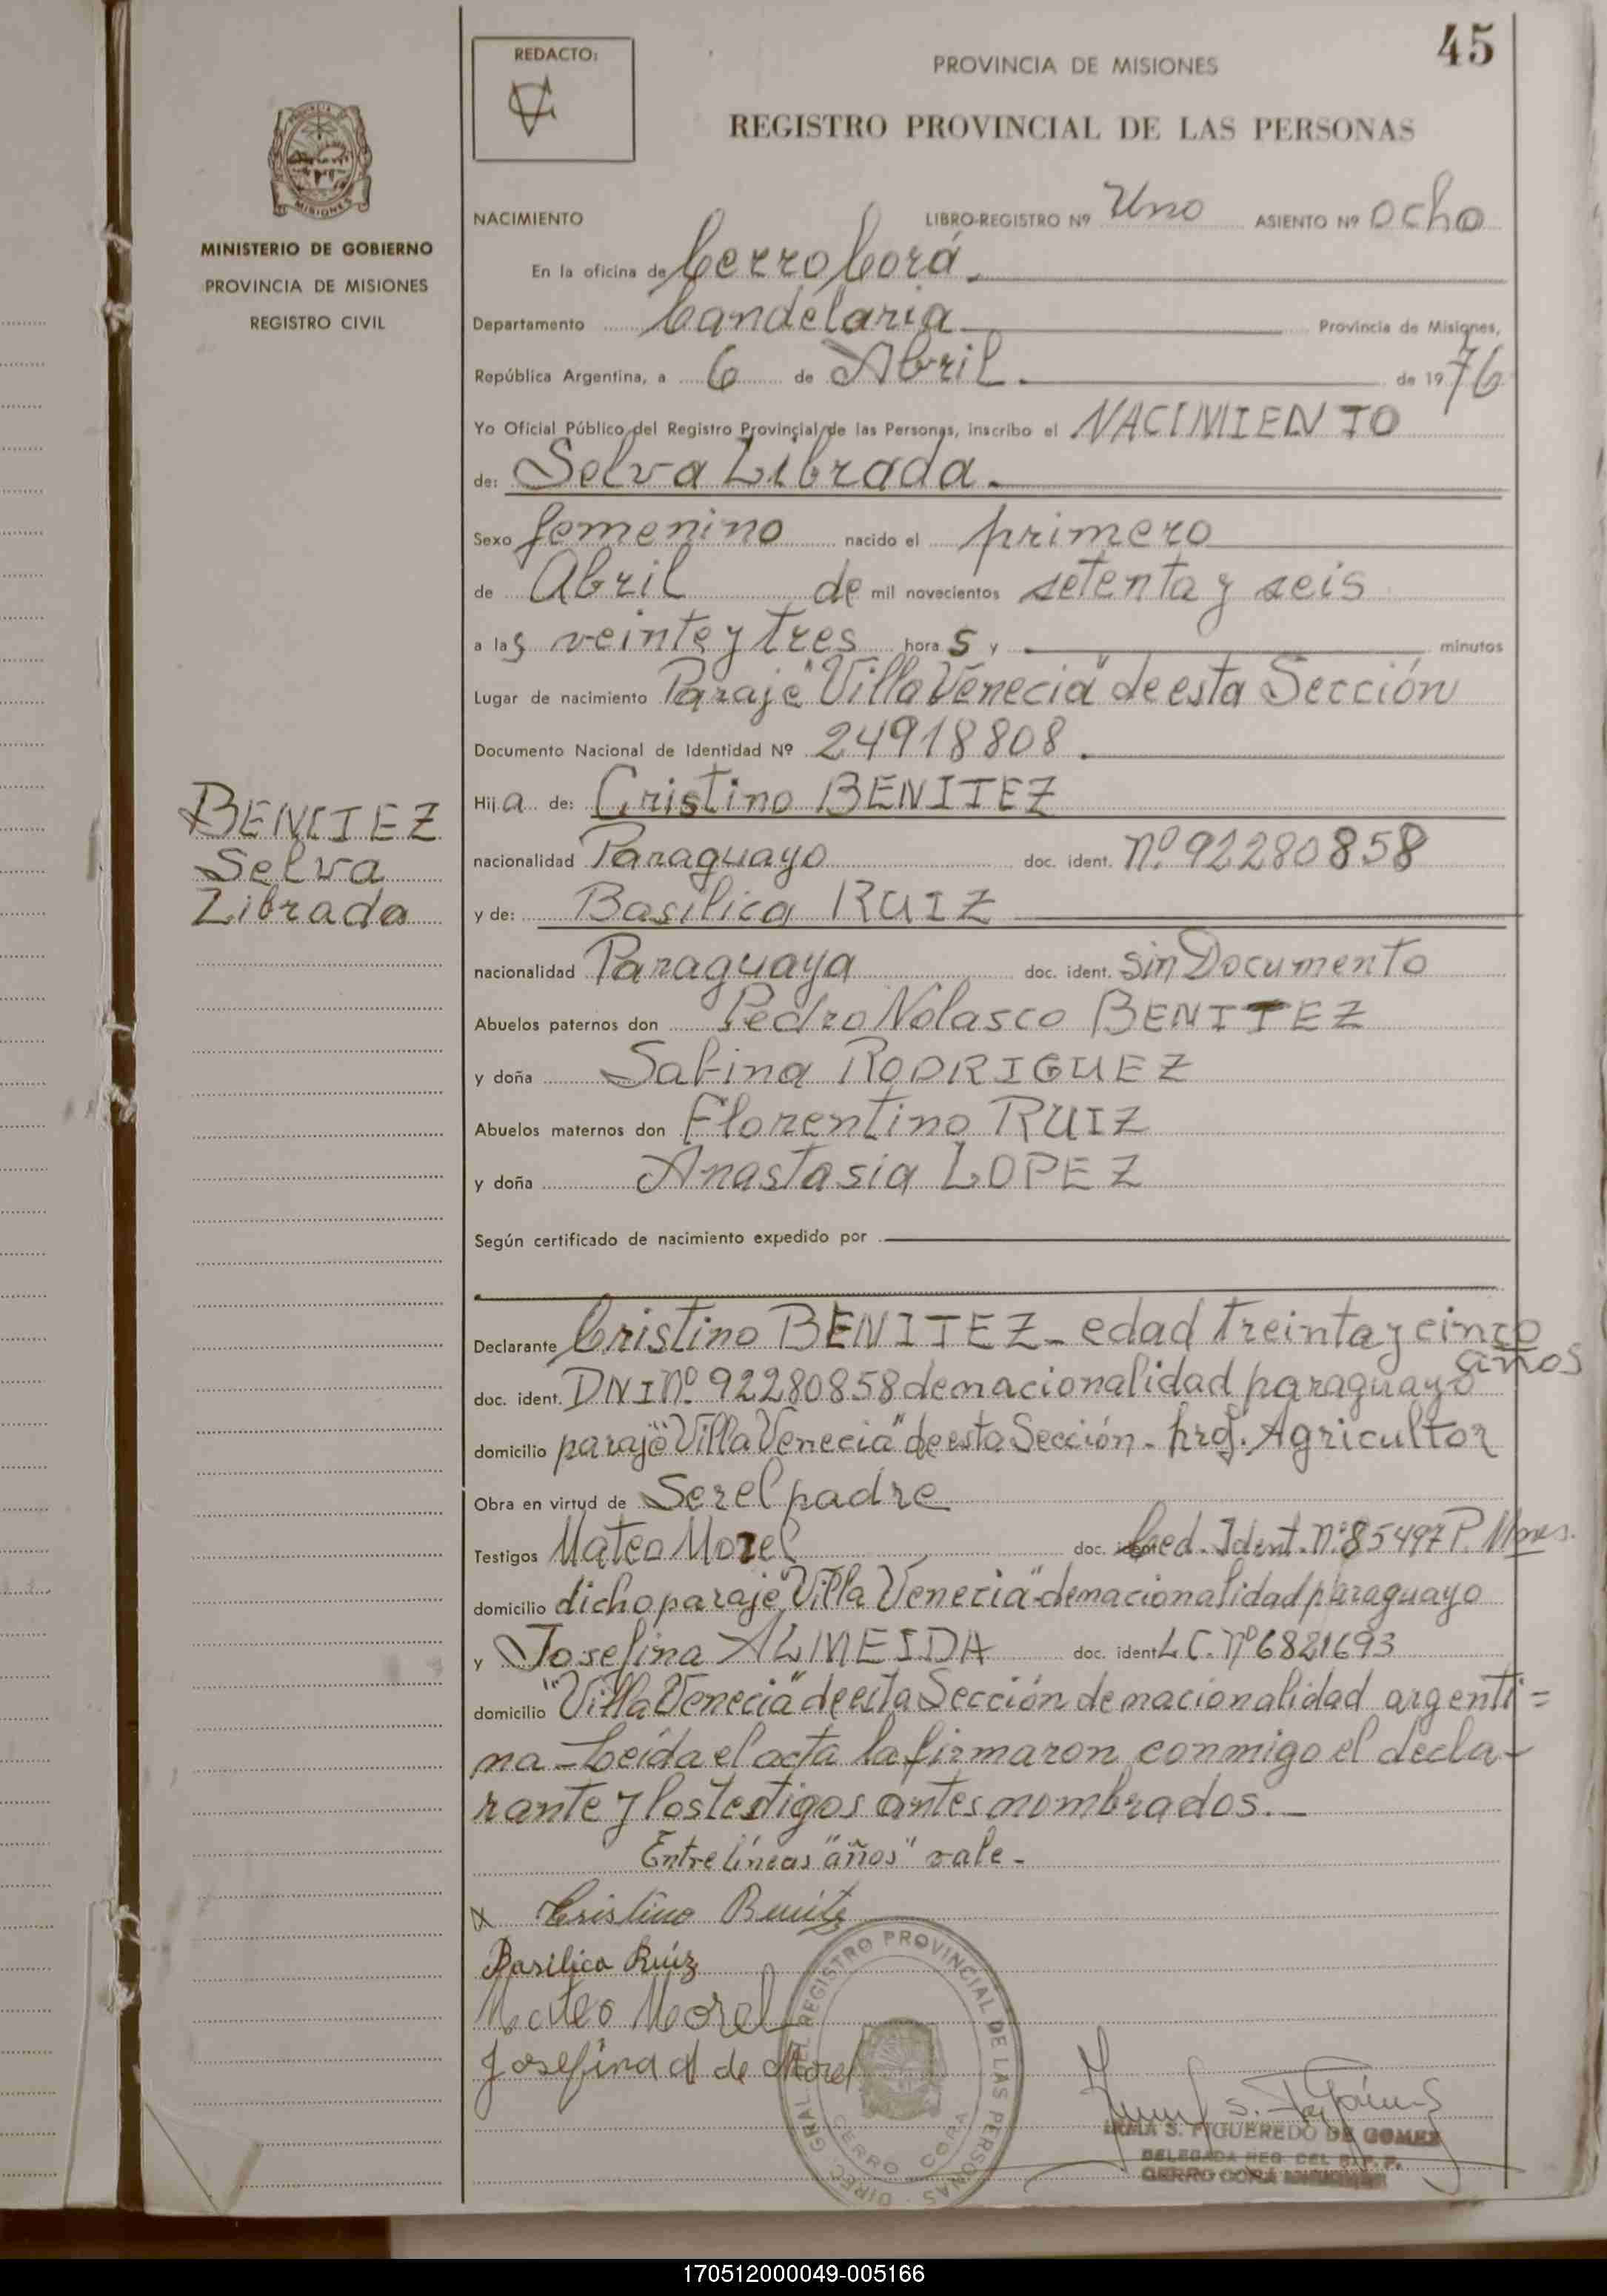 45
REDACTO:
PROVINCIA DE MISIONES
REGISTRO PROVINCIAL DE LAS PERSONAS
MISIONES
MINISTERIO DE GOBIERNO
PROVINCIA DE MISIONES
REGISTRO CIVIL
NACIMIENTO LIBRO-REGISTRO Nº Uno ASIENTO Nº ocho
En la oficina de Cerro Corá.
Departamento Candelaria Provincia de Misiones,
República Argentina, a 6 de Abril. de 1976
Yo Oficial Público del Registro Provincial de las Personas, inscribo el NACIMIENTO
de: Selva Librada.
Sexo femenino nacido el primero
de Abril de mil novecientos setenta y seis
a las veinte y tres horas y minutos
Lugar de nacimiento Paraje "Villa Venecia" de esta Sección
Documento Nacional de Identidad Nº 24918808.
Hija de: Cristino BENITEZ
BENITEZ
Selva
Librada
nacionalidad Paraguayo doc. ident. nº 92280858
y de: Basilica RUIZ
nacionalidad Paraguaya doc. ident. sin Documento
Abuelos paternos don Pedro Nolasco BENITEZ
y doña Sabina RODRIGUEZ
Abuelos maternos don Florentino RUIZ
y doña Anastasia LOPEZ
Según certificado de nacimiento expedido por
Declarante Cristino BENITEZ - edad treinta y cinco
años
doc. ident. DNI nº 92280858 de nacionalidad paraguayo
domicilio paraje "Villa Venecia" de esta Sección - prof. Agricultor
Obra en virtud de Ser el padre
Testigos Mateo Morel doc. ident. Ced. Ident. nº 85497 P. Mnes.
domicilio dicho paraje "Villa Venecia" de nacionalidad paraguayo
y Josefina ALMEIDA doc. ident L C. nº 6821693
domicilio "Villa Venecia" de esta Sección de nacionalidad argenti=
na - Leída el acta la firmaron conmigo el decla-
rante y los testigos antes nombrados.-
Entre líneas "años" vale-
x Cristino Benitez
Basilica Ruiz
Mateo Morel
Josefina A de Morel
DIREC. GRAL. DEL REGISTRO PROVINCIAL DE LAS PERSONAS
CERRO CORA
IRMA S. FIGUEREDO DE GOMEZ
DELEGADA REG. DEL R. P. P.
CERRO CORA MISIONES
170512000049-005166